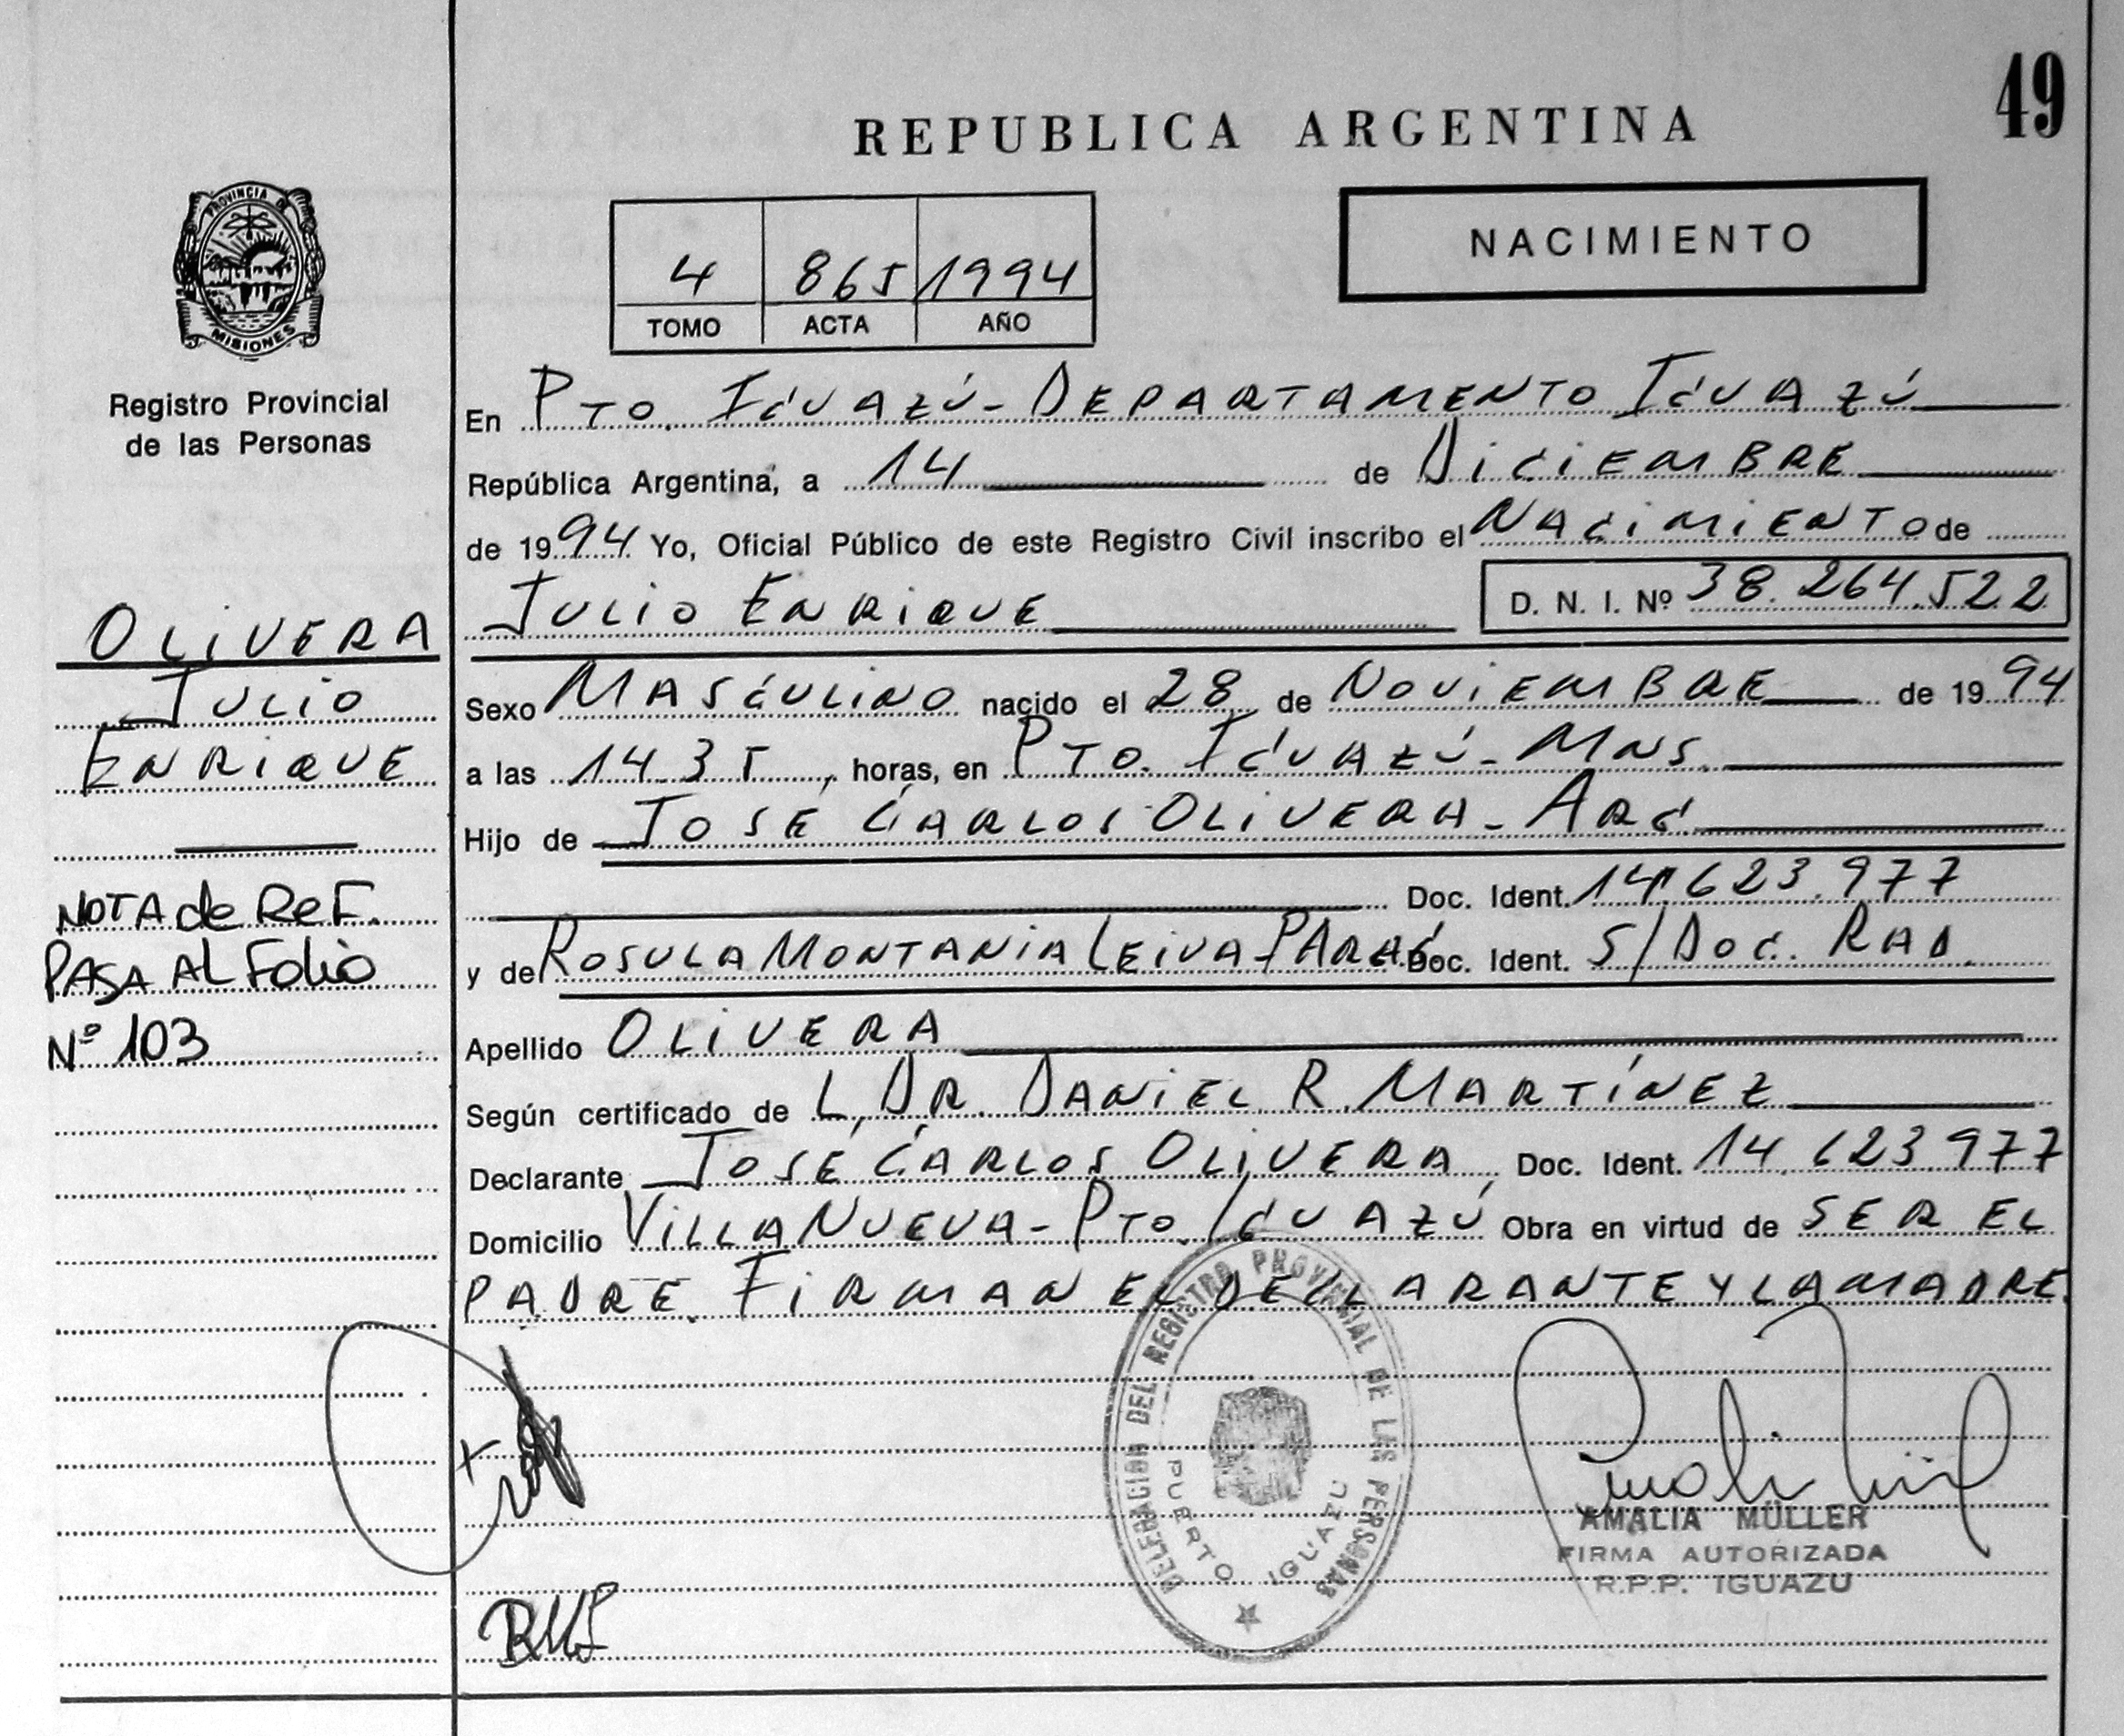 49
REPUBLICA ARGENTINA
PROVINCIA DE
MISIONES
Registro Provincial
de las Personas
4 865 1994
TOMO ACTA AÑO
NACIMIENTO
En Pto. Iguazú - Departamento Iguazú
República Argentina, a 14 de Diciembre
de 1994 Yo, Oficial Público de este Registro Civil inscribo el Nacimiento de
Julio Enrique D. N. I. Nº 38.264.522
Olivera
Julio
Enrique
Sexo Masculino nacido el 28 de Noviembre de 1994
a las 14.35, horas, en Pto. Iguazú - Mns.
Hijo de José Carlos Olivera - Arg.
Doc. Ident. 14.623.977
y de Rosula Montania Leiva - Parag. Doc. Ident. S/Doc. Rad.
NOTA de Ref.
PASA AL Folio
Nº 103
Apellido Olivera
Según certificado de L. Dr. Daniel R. Martínez
Declarante José Carlos Olivera, Doc. Ident. 14.623.977
Domicilio Villa Nueva - Pto. Iguazú Obra en virtud de ser el
padre. Firman el declarante y la madre.
DELEGACION DEL REGISTRO PROVINCIAL DE LAS PERSONAS
PUERTO IGUAZU
AMALIA MÜLLER
FIRMA AUTORIZADA
R.P.P. IGUAZU